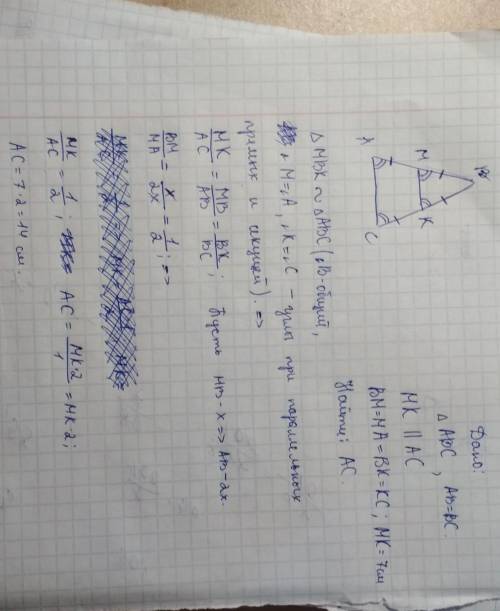 B
M
K
A
C
Дано:
△ ABC, AB=BC
MK || AC
BM=MA=BK=KC; MK=7см
Найти: AC.
△ MBK ~ △ABC (∠B-общий,
∠M=∠A, ∠K=∠C - углы при параллельных
прямых и секущей). =>
MK/AC = MB/AB = BK/BC; Пусть MB-x => AB-2x.
BM/MA = x/2x = 1/2; =>
MK/AC = 1/2; AC = MK·2/1 = MK·2;
AC = 7·2 = 14 см.